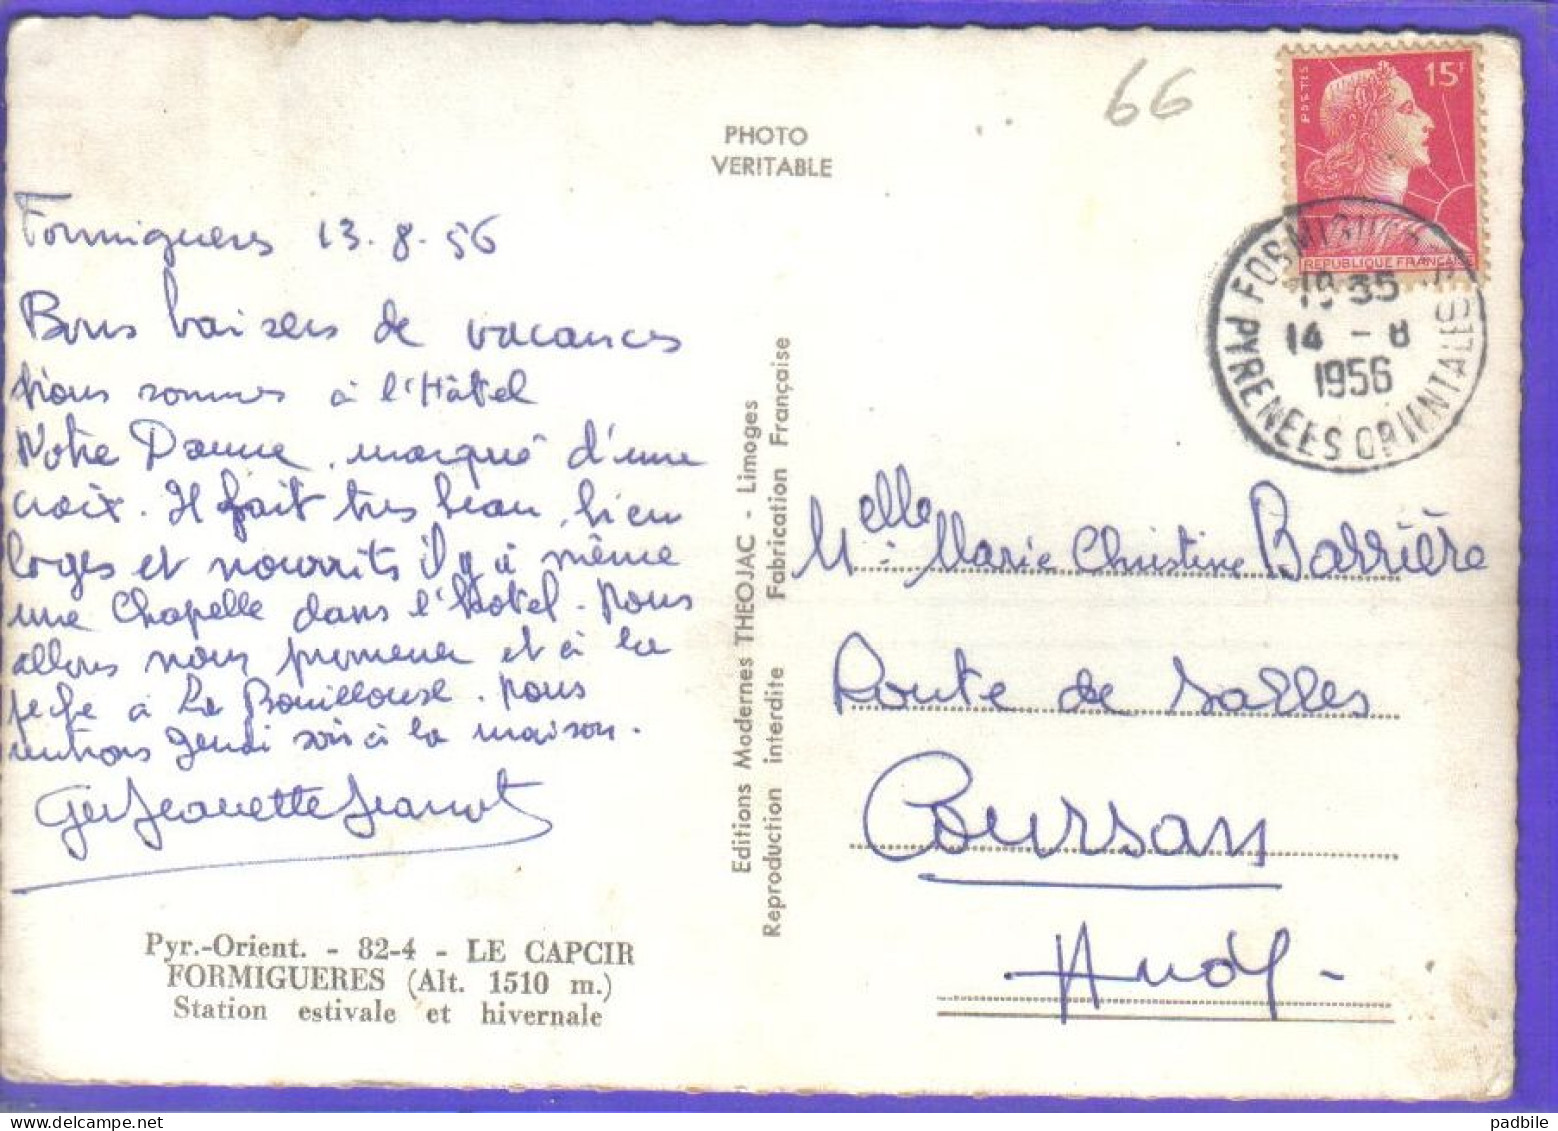 66
15F
POSTES
REPUBLIQUE FRANÇAISE
PHOTO
VERITABLE
FORMIGUERES
14 - 8
1956
PYRENEES ORIENTALES
Formigueres 13.8.56
Bons baisers de vacances
Nous sommes à l'Hôtel
Notre Dame, marqué d'une
croix. Il fait très beau, bien
loges et nourrits il y a même
une Chapelle dans l'hotel. Nous
allons nous promener et à la
peche à La Bouillouse. Nous
rentrons Jeudi soir à la maison.
Jeanette
Pyr.-Orient. - 82-4 - LE CAPCIR
FORMIGUERES (Alt. 1510 m.)
Station estivale et hivernale
Editions Modernes THEOJAC - Limoges
Reproduction interdite Fabrication Française
Melle: Marie Christine Barrière
Route de Salles
Coursan
- Aude -
padbile